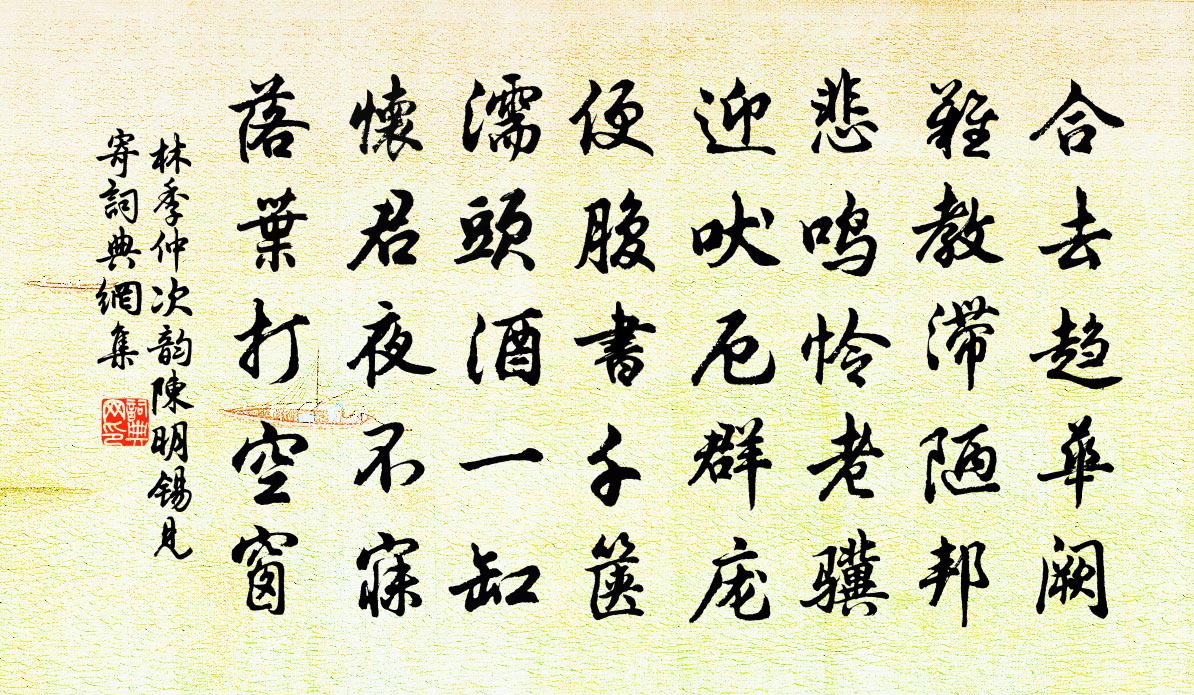 合去趋華阙
難教滞陋邦
悲鸣怜老骥
迎吠厄群庞
便腹書千箧
濡頭酒一缸
懷君夜不寐
落葉打空窗
林季仲次韵陳明錫見
寄詞典網集
詞典网印